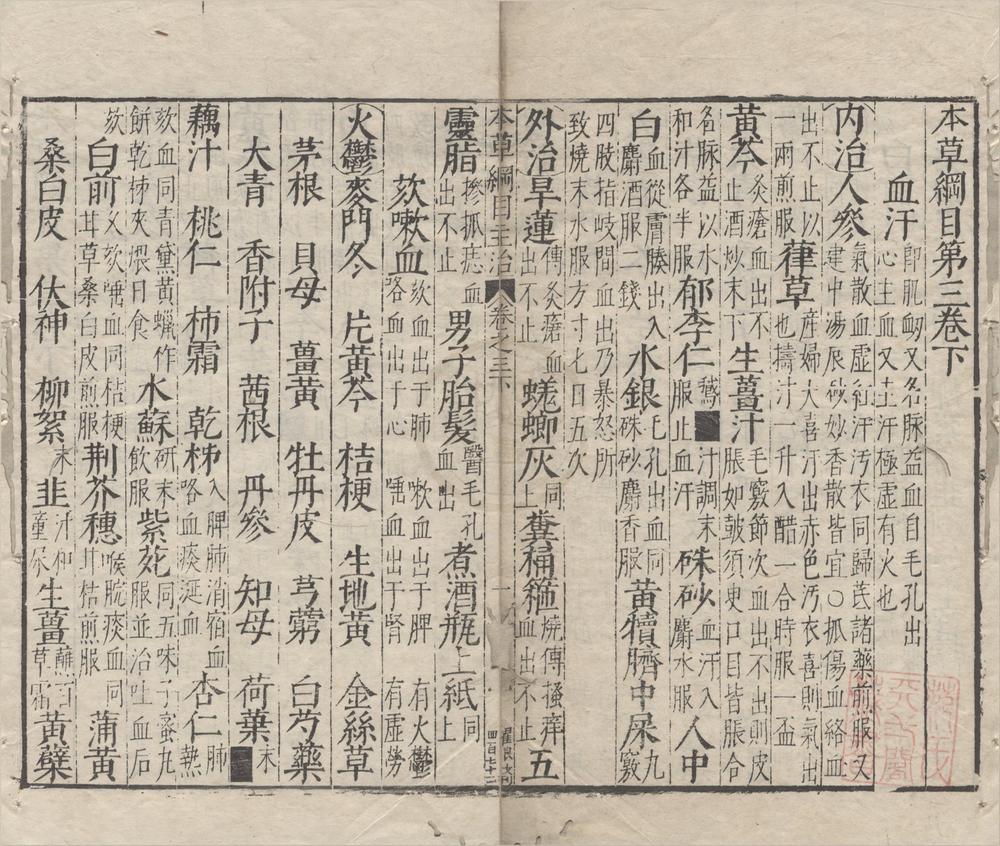 本草綱目第三卷下
血汗即肌衂又名脉益血自毛孔出心主血又主汗極虛有火也
內治人參氣散血虛紅汗汚衣同歸芪諸藥煎服又建中湯辰砂妙香散皆宜○抓傷血絡血
出不止以一兩煎服葎草産婦大喜汗出赤色汚衣喜則氣散也擣汁一升入醋一合時服一盃
黃芩灸瘡血出不止酒炒末下生薑汁毛竅節次血出不出則皮脹如皷須臾口目皆脹合
名脉益以水和汁各半服郁李仁鵞■汁調末服止血汗硃砂血汗入麝水服人中
白血從膚腠出入麝酒服二錢水銀毛孔出血同硃砂麝香服黃犢臍中屎九竅
四肢指岐間血出乃暴怒所致燒末水服方寸七日五次
外治旱蓮傅灸瘡血出不止蜣蜋灰同上糞桶箍燒傅搔痒血出不止五
本草綱目主治 卷之三下 一
靈脂摻抓痣血出不止男子胎髮醫毛孔血出煮酒瓶上紙同上
欬嗽血欬血出于肺嗽血出于脾咯血出于心唾血出于腎有火鬱有虛勞
火鬱麥門冬 片黃芩 桔梗 生地黃 金絲草
茅根 貝母 薑黃 牡丹皮 芎藭 白芍藥
大青 香附子 茜根 丹參 知母 荷葉末■
藕汁 桃仁 柿霜 乾柹入脾肺消宿血咯血痰涎血杏仁肺熱
欬血同青黛黃蠟作餅乾柹夾煨日食水蘇研末飲服紫菀同五味子蜜丸服並治吐血后
欬白前久欬唾血同桔梗甘草桑白皮煎服荆芥穗喉脘痰血同甘桔煎服蒲黃
桑白皮 伏神 柳絮末韭汁和童尿生薑蘸百草霜黃蘗